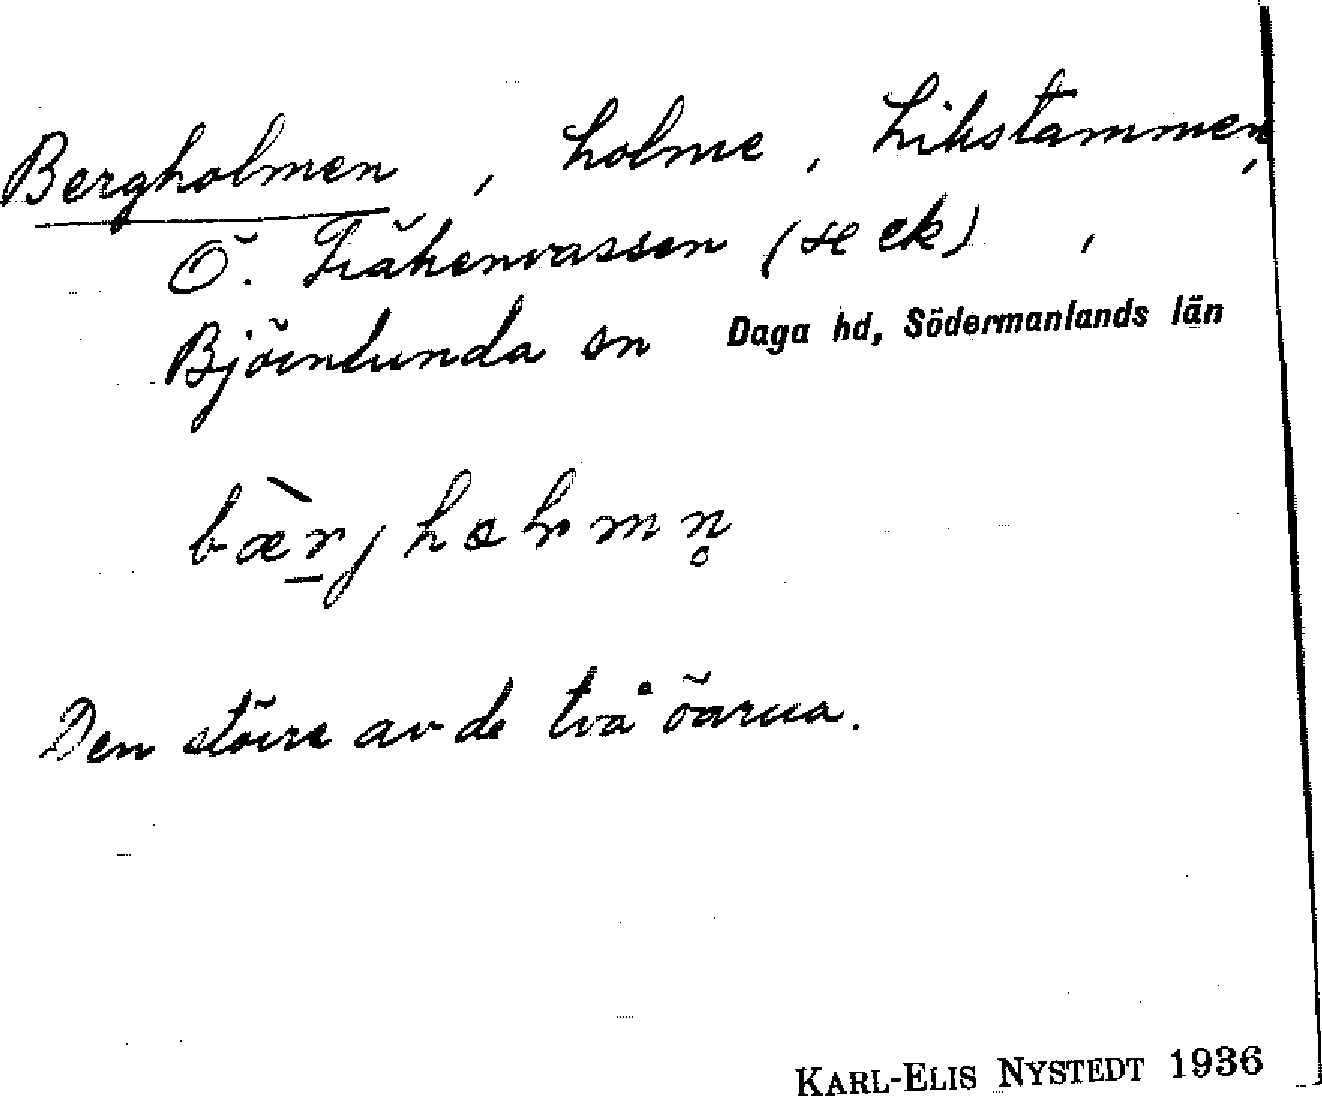 Bergholmen, holme, Likstammen,
Ö. Fräkenvassen (se ek),
Björnlunda sn Daga hd, Södermanlands län
bæ̀rjhɷlmn̥
Den större av de två öarna.
KARL-ELIS NYSTEDT 1936